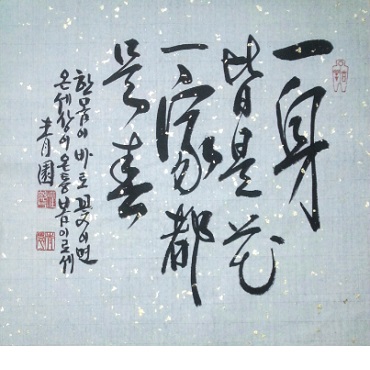 一身
皆是花
一家都
是春
한몸이 바로 꽃이면
온세상이 온통 봄이로세
青園